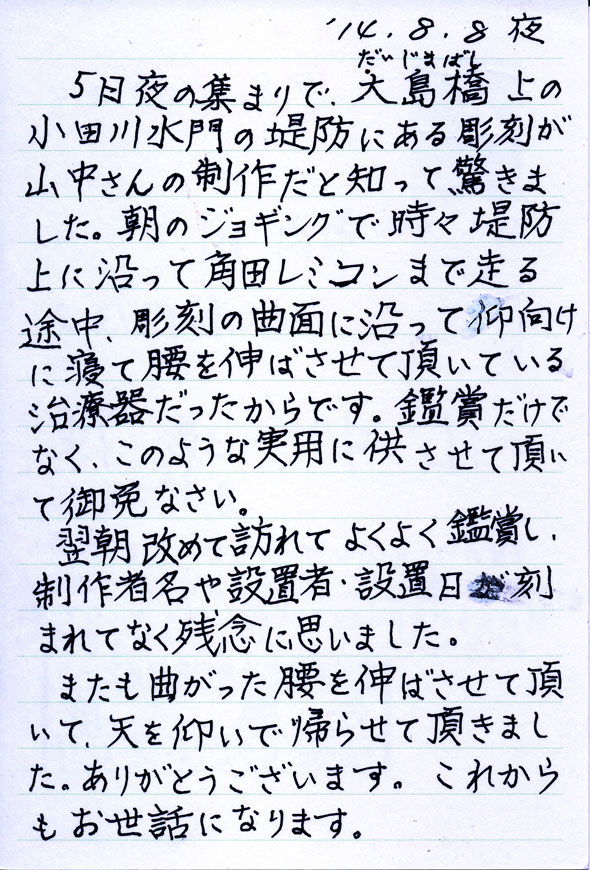 '14.8.8 夜
だいじまばし
5日夜の集まりで、大島橋上の
小田川水門の堤防にある彫刻が
山中さんの制作だと知って驚きま
した。朝のジョギングで時々堤防
上に沿って角田レミコンまで走る
途中、彫刻の曲面に沿って仰向け
に寝て腰を伸ばさせて頂いている
治療器だったからです。鑑賞だけで
なく、このような実用に供させて頂い
て御免なさい。
翌朝改めて訪れてよくよく鑑賞し、
制作者名や設置者・設置日が刻
まれてなく残念に思いました。
またも曲がった腰を伸ばさせて頂
いて、天を仰いで帰らせて頂きまし
た。ありがとうございます。これから
もお世話になります。